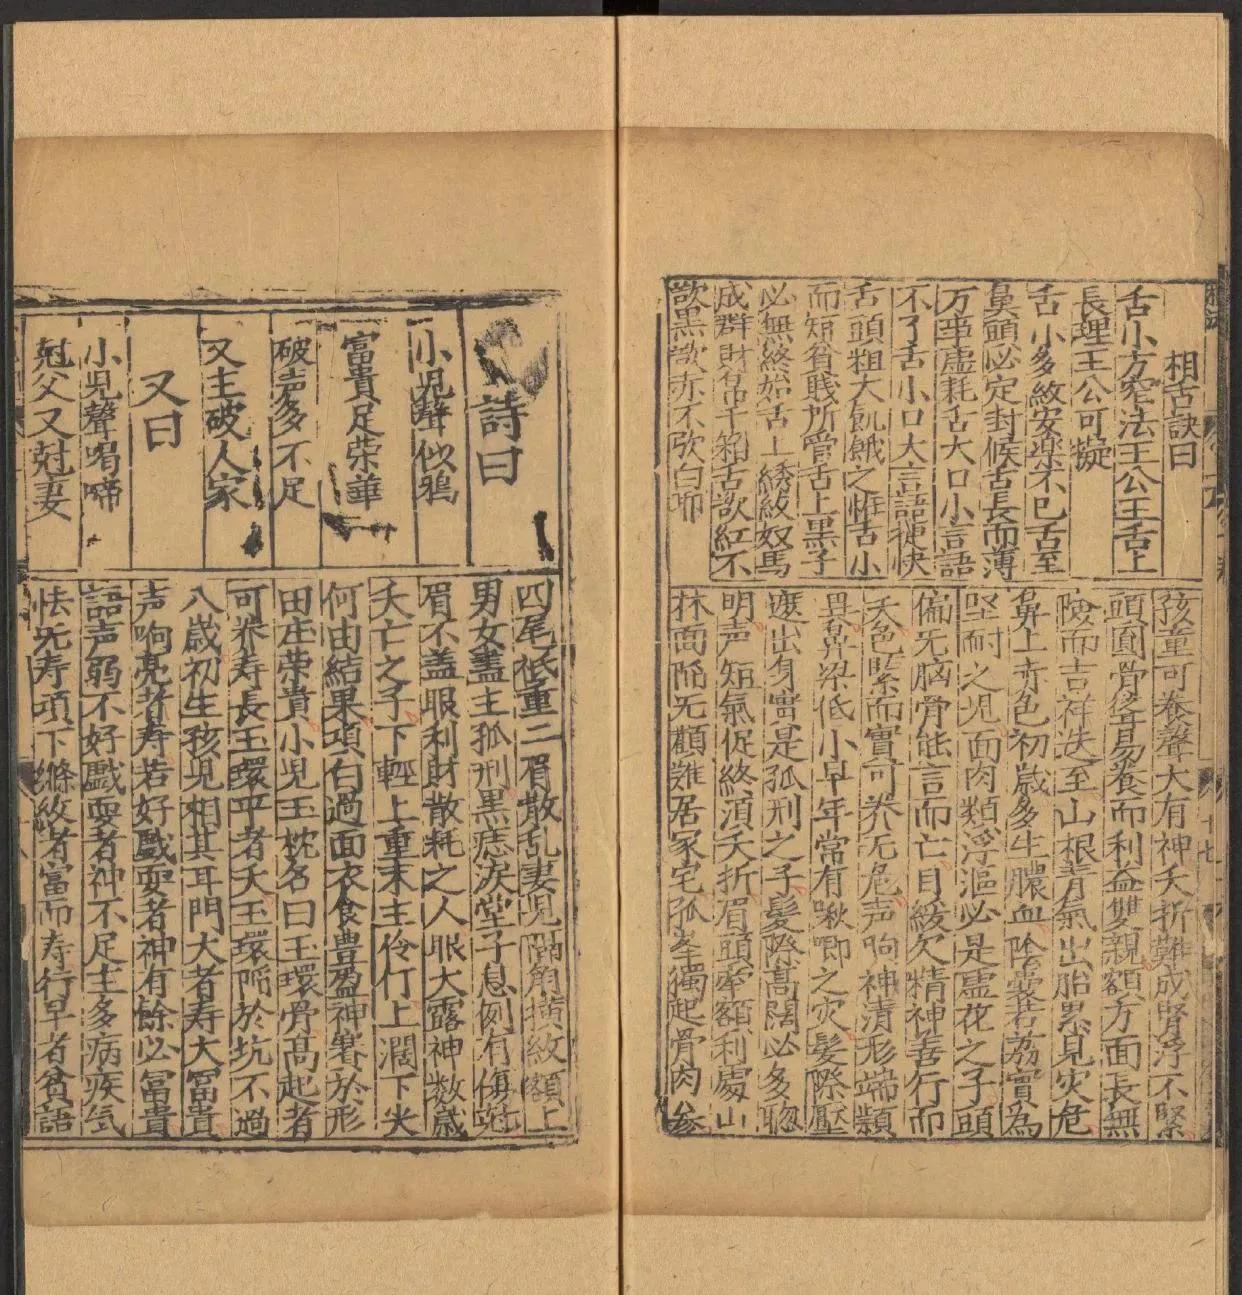 相舌訣曰
舌小方窄法王公王舌上
長理王公可擬
舌小多紋安樂不已舌至
鼻頭必定封候舌長而薄
万事虛耗舌大口小言語
不了舌小口大言語捷快
舌頭粗大飢餓之恠舌小
而短貧賤所管舌上黑子
必無終始舌上綉紋奴馬
成群財帛千箱舌欲紅不
欲黑欲赤不欲白
孩童可養聲大有神夭折難成腎浮不緊
頭圓骨後易養而利益雙親額方面長無
險而吉祥迭至山根青氣出胎累見灾危
鼻上赤色初歲多生膿血陰囊若荔實為
堅耐之児面肉類浮漚必是虛花之子頭
偏旡腦骨能言而亡目緩欠精神善行而
夭色緊而實可养旡危声响神清形端類
異鼻梁低小早年常有啾唧之灾髮際壓
遮出身實是孤刑之子髮際高闊必多聦
明声短氣促終湏夭折眉頭牽額利處山
林面陥旡顴難居家宅孤峯獨起骨肉參
詩曰
小児聲似鴉
富貴足荣華
破声多不足
又主破人家
又曰
小児聲啼
尅父又尅妻
四尾低重二眉散乱妻児隔角横紋額上
男女盡主孤刑黑痣淚堂子息例有傷尅
眉不盖眼利財散耗之人眼大露神数歲
夭亡之子下輕上重末主伶仃上濶下尖
何由結果項白過面衣食豊盈神騫於形
田庄荣貴小児玉枕名曰玉環骨髙起者
可养寿長玉環平者夭玉環陥於坑不過
八歲初生孩児相其耳門大者寿大冨貴
声响亮者寿若好戱耍者神有餘必冨貴
語声弱不好戱耍者神不足主多病疾気
怯旡寿項下絛紋者富而寿行早者貧語